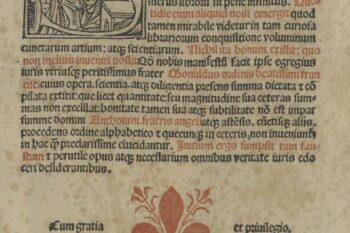 merus librorū in pene infinitus. Quo
tidie enim aliquid noui emergit quod
tamen mirabile videtur in tam curiosa
librariorum conquisitione voluminum
cunctarum artium: atq; scientiarum. Nichil ita bonum existit: quo
non melius inueniri possit. Qo nobis manifestū facit ipse egregius
iuris vtriusq; peritissimus frater Monaldus ordinis beatissimi fran
cisci: cuius opera. scientia. atq; diligentia presens summa dictata & cō
pilata extitit que licet quantitate: seu magnitudine sua ceteras sum
mas non excellat. bonitate tamen sua atq; subtilitate nō est impar
summe domini Anthonini. fratris angeli atq; astēsis. cūctisq; alijs.
procedens ordine alphabetico & quecunq; in ceteris. non inueniunt̄
in hac q; preclarissime elucidantur. Initium ergo sumpsit tam fau
stum & perutile opus atq; necessarium omnibus veritate iuris edo
ceri desiderantibus.
Cum gratia et priuilegio.